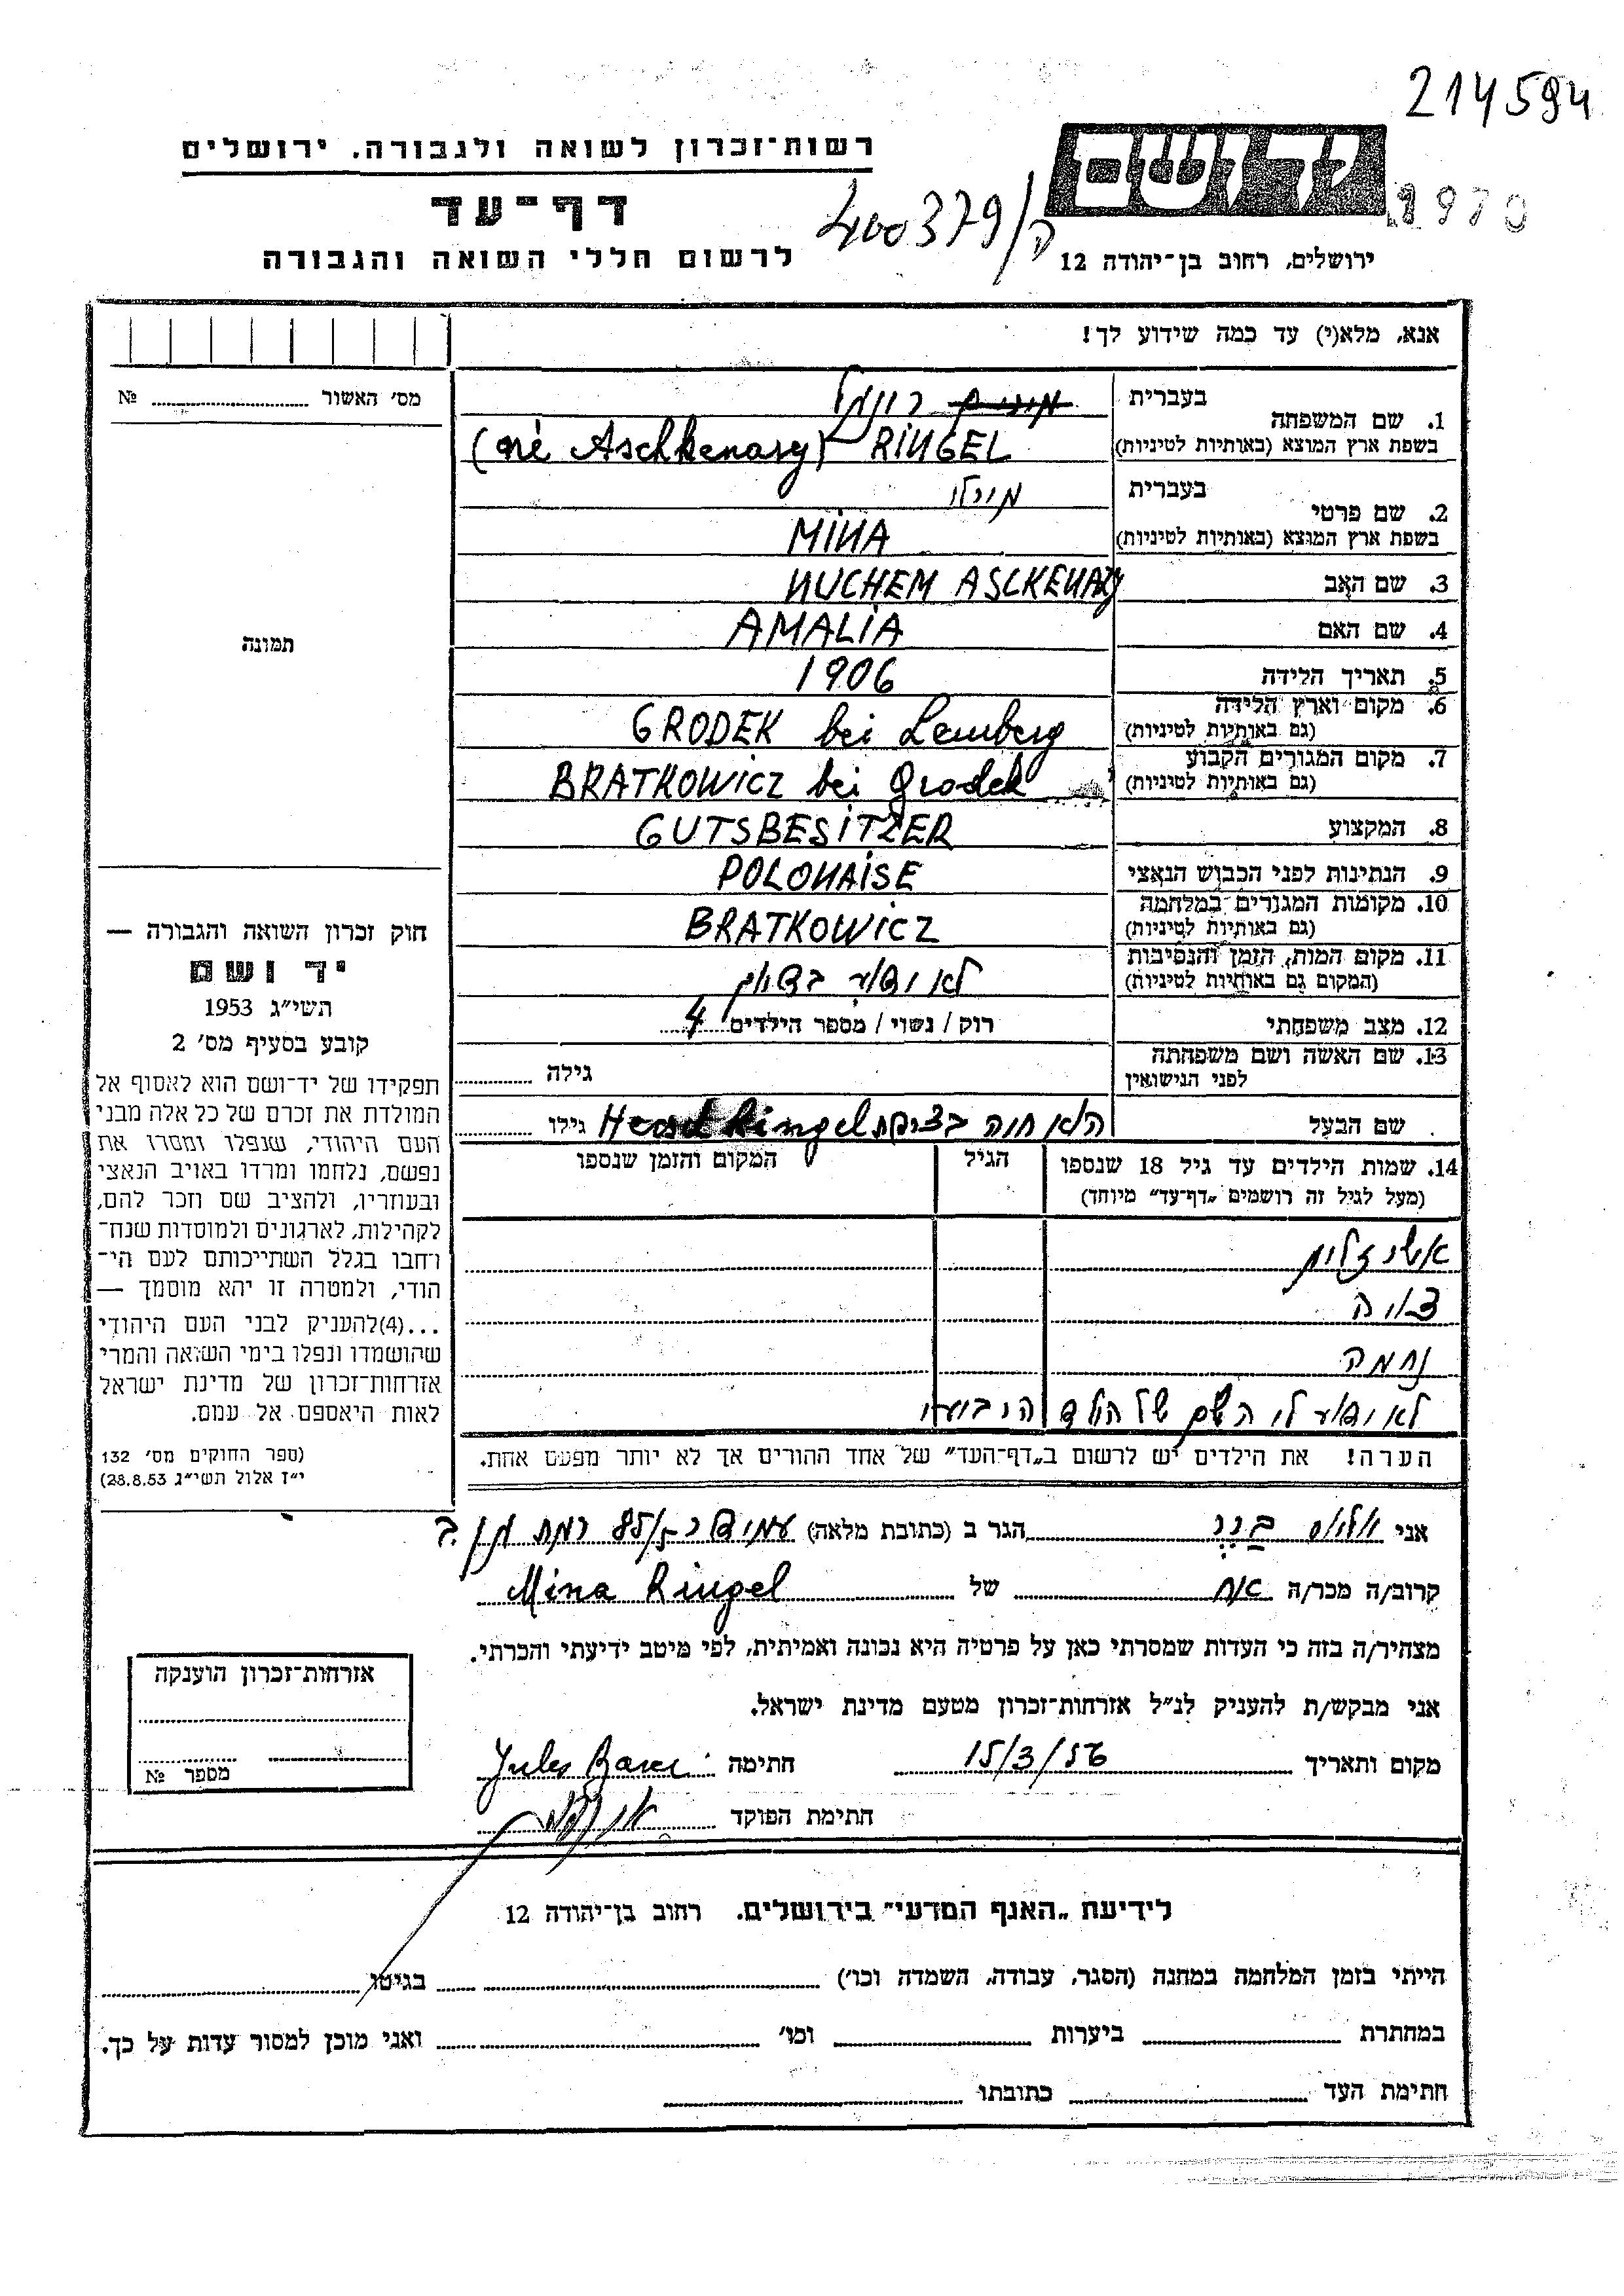 214594
רשות־זכרון לשואה ולגבורה, ירושלים
יד ושם
דף־עד
400379/ה
לרשום חללי השואה והגבורה
ירושלים, רחוב בן־יהודה 12
אנא, מלא(י) עד כמה שידוע לך!
מס' האשור № 
1. שם המשפחה
בעברית רינגל
בשפת ארץ המוצא (באותיות לטיניות) (né Aschkenasy) RINGEL
2. שם פרטי
בעברית
בשפת ארץ המוצא (באותיות לטיניות) MINA
3. שם האב NUCHEM ASCKENAZY
4. שם האם AMALIA
תמונה
5. תאריך הלידה 1906
6. מקום וארץ הלידה
(גם באותיות לטיניות) GRODEK bei Lemberg
7. מקום המגורים הקבוע
(גם באותיות לטיניות) BRATKOWICZ bei Grodek
8. המקצוע GUTSBESITZER
9. הנתינות לפני הכבוש הנאצי POLONAISE
10. מקומות המגורים במלחמה
(גם באותיות לטיניות) BRATKOWICZ
11. מקום המות, הזמן והנסיבות
(המקום גם באותיות לטיניות) לא ידוע בדיוק
12. מצב משפחתי רוק / נשוי / מספר הילדים 4
13. שם האשה ושם משפחתה
לפני הנישואין גילה
שם הבעל Ringel גילו
14. שמות הילדים עד גיל 18 שנספו הגיל המקום והזמן שנספו
(מעל לגיל זה רושמים „דף־עד" מיוחד)
נחמה
לא ידוע לי השם של הילד הרביעי
הערה! את הילדים יש לרשום ב„דף־העד" של אחד ההורים אך לא יותר מפעם אחת.
חוק זכרון השואה והגבורה —
יד ושם
תשי"ג 1953
קובע בסעיף מס' 2
תפקידו של יד־ושם הוא לאסוף אל
המולדת את זכרם של כל אלה מבני
העם היהודי, שנפלו ומסרו את
נפשם, נלחמו ומרדו באויב הנאצי
ובעוזריו, ולהציב שם וזכר להם,
לקהילות, לארגונים ולמוסדות שנח־
רבו בגלל השתייכותם לעם הי־
הודי, ולמטרה זו יהא מוסמך —
...(4)להעניק לבני העם היהודי
שהושמדו ונפלו בימי השואה והמרי
אזרחות־זכרון של מדינת ישראל
לאות היאספם אל עמם.
(ספר החוקים מס' 132
י"ז אלול תשי"ג 28.8.53)
אני הגר ב (כתובת מלאה) רמת גן
קרוב/ה מכר/ה אח של Mina Ringel
מצהיר/ה בזה כי העדות שמסרתי כאן על פרטיה היא נכונה ואמיתית, לפי מיטב ידיעתי והכרתי.
אני מבקש/ת להעניק לנ"ל אזרחות־זכרון מטעם מדינת ישראל.
מקום ותאריך 15/3/56 חתימה Jules
חתימת הפוקד
אזרחות־זכרון הוענקה
מספר №
לידיעת „האגף המדעי" בירושלים, רחוב בן־יהודה 12
הייתי בזמן המלחמה במחנה (הסגר, עבודה, השמדה וכו') בגיטו
במחתרת ביערות וכו' ואני מוכן למסור עדות על כך.
חתימת העד כתובתו